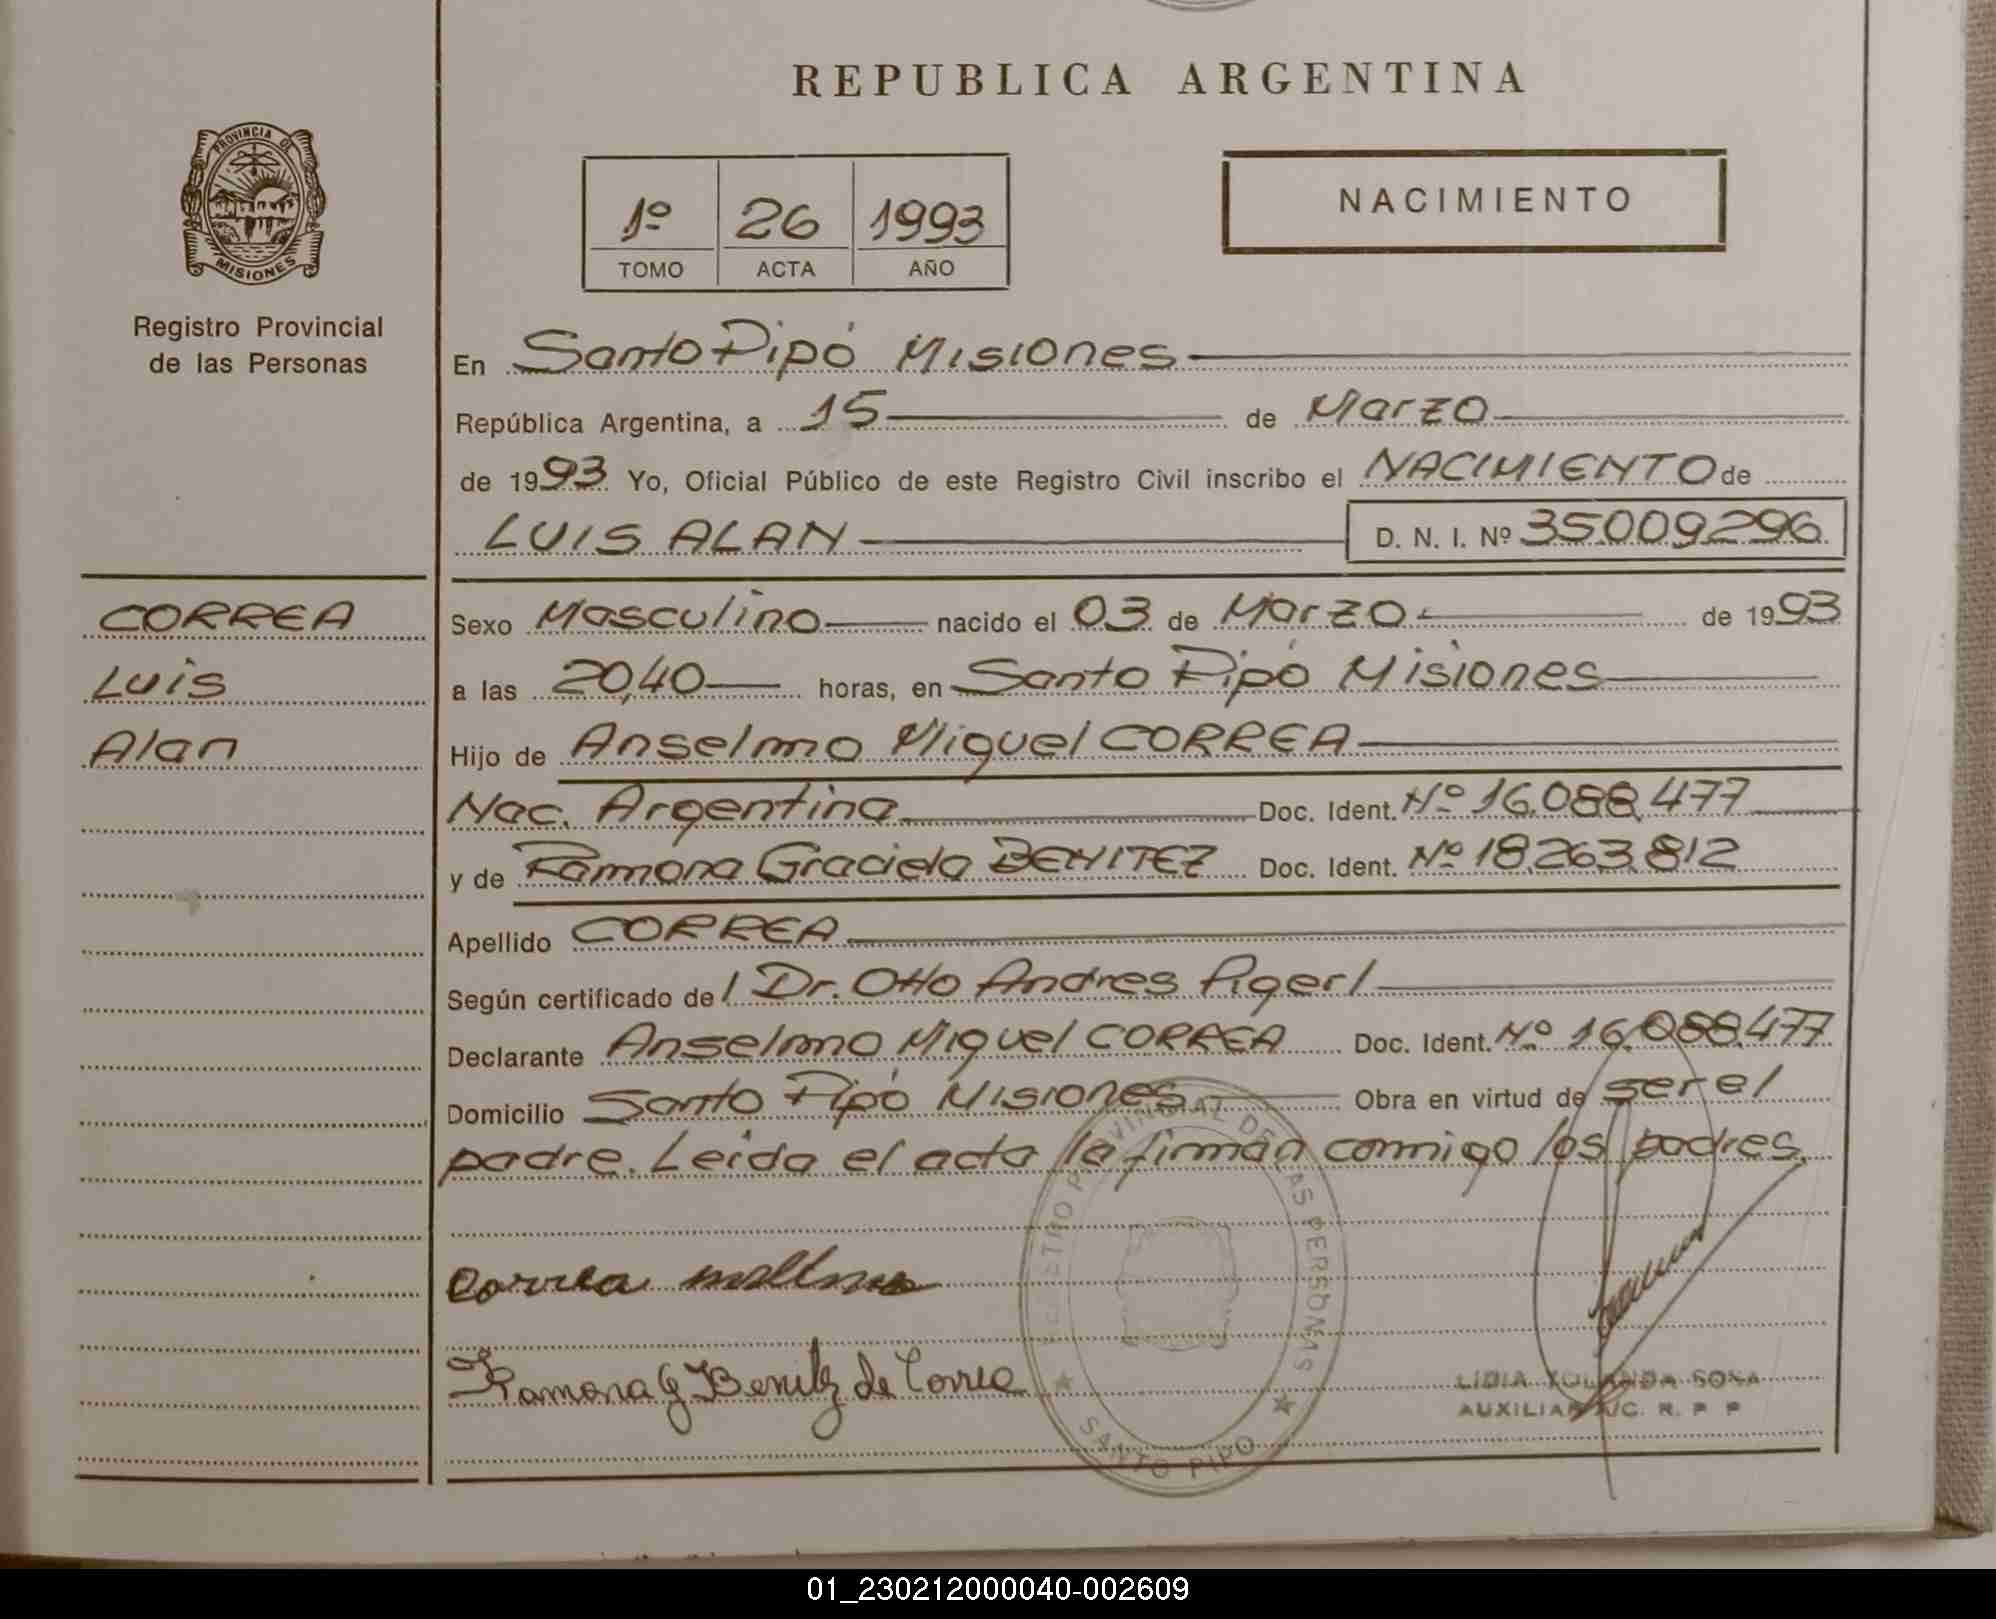 REPUBLICA ARGENTINA
PROVINCIA DE
MISIONES
Registro Provincial
de las Personas
1º 26 1993
TOMO ACTA AÑO
NACIMIENTO
En Santo Pipó Misiones
República Argentina, a 15 de Marzo
de 1993 Yo, Oficial Público de este Registro Civil inscribo el NACIMIENTO de
LUIS ALAN D. N. I. Nº 35009296
CORREA
Luis
Alan
Sexo Masculino nacido el 03 de Marzo de 1993
a las 20,40 horas, en Santo Pipó Misiones
Hijo de Anselmo Miguel CORREA
Nac. Argentina Doc. Ident. Nº 16.088.477
y de Ramona Graciela BENITEZ Doc. Ident. Nº 18.263.812
Apellido CORREA
Según certificado del Dr. Otto Andres Pigerl
Declarante Anselmo Miguel CORREA Doc. Ident. Nº 16.088.477
Domicilio Santo Pipó Misiones Obra en virtud de ser el
padre. Leida el acta la firman conmigo los padres.
REGISTRO PROVINCIAL DE LAS PERSONAS
SANTO PIPO
Correa
Ramona G Benitez de Correa
LIDIA YOLANDA SOSA
AUXILIAR R. P. P
01_230212000040-002609